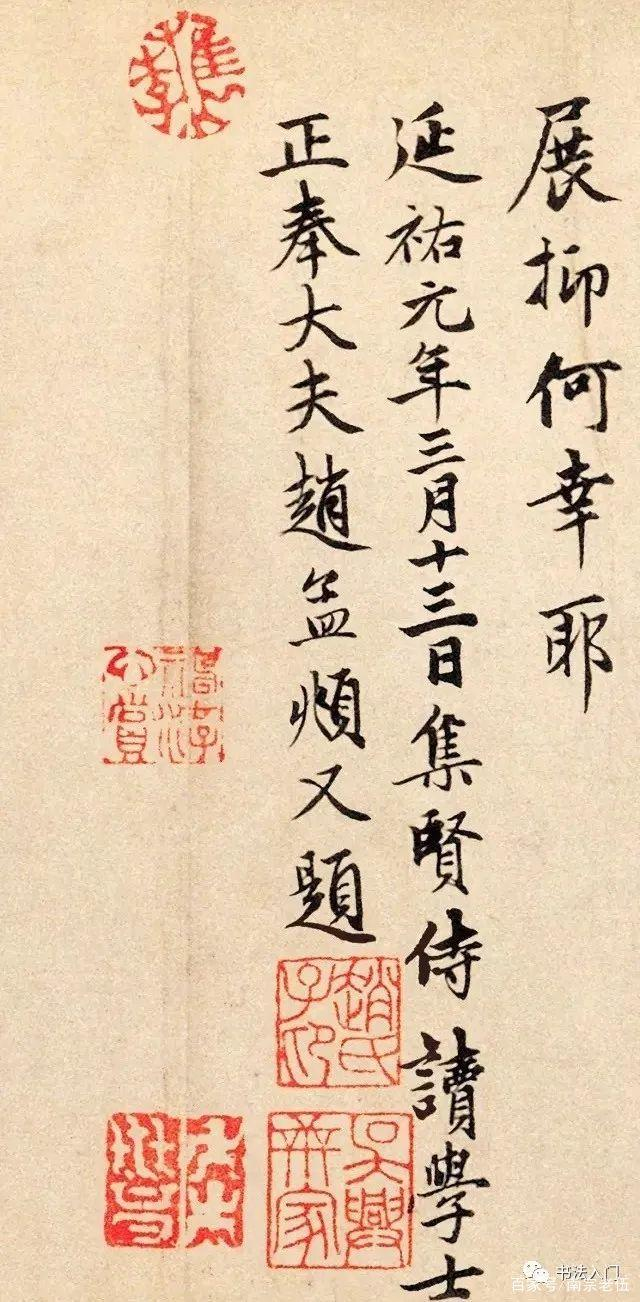 展抑何幸耶
延祐元年三月十三日集賢侍讀學士
正奉大夫趙孟頫又題
趙氏子昂
檇李
书法入门
百家号/南京老伍